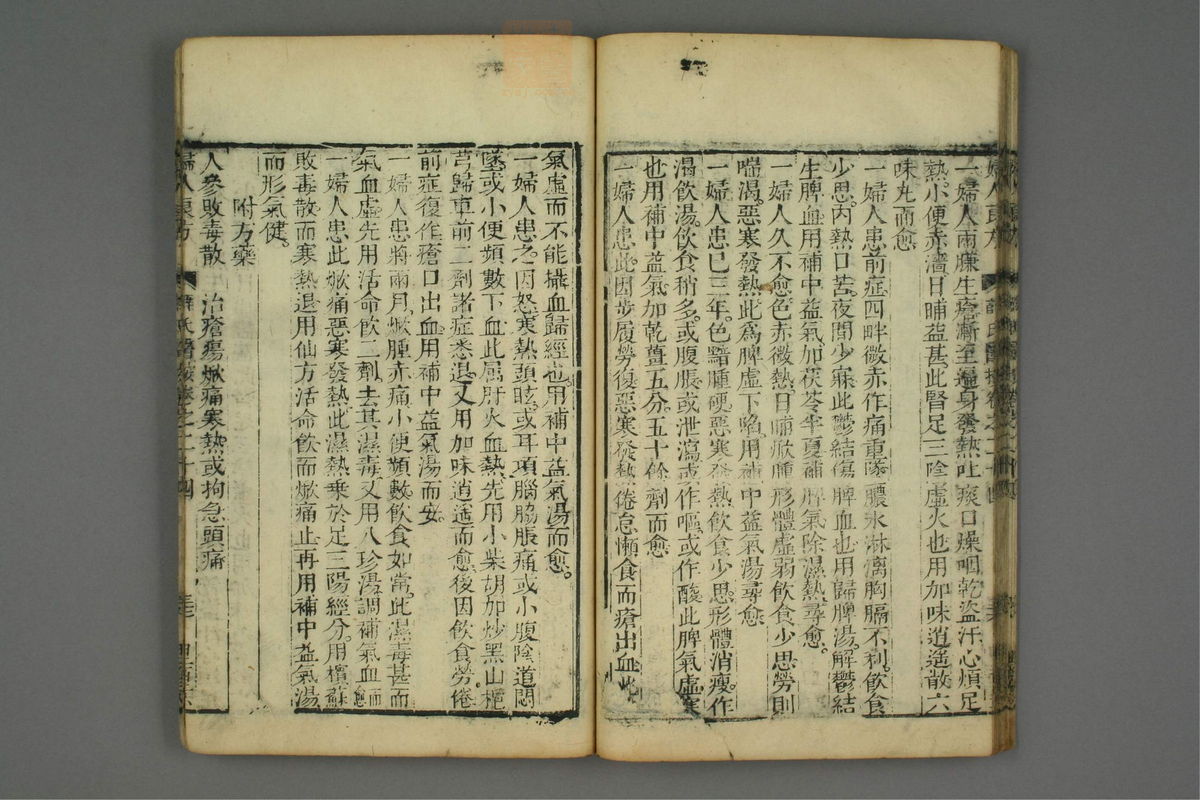 一婦人兩臁生瘡漸至遍身發熱吐痰口燥咽乾盜汗心煩足
熱小便赤濇日晡益甚此腎足三陰虛火也用加味逍遙散六
味丸而愈
一婦人患前症四畔微赤作痛重墜膿水淋漓胸膈不利飲食
少思內熱口苦夜間少寐此鬱結傷脾血也用歸脾湯解鬱結
生脾血用補中益氣加茯苓半夏補脾氣除濕熱尋愈
一婦人久不愈色赤微熱日晡焮腫形體虛弱飲食少思勞則
喘渴惡寒發熱此爲脾虛下陷用補中益氣湯尋愈
一婦人患已三年色黯腫硬惡寒發熱飲食少思形體消瘦作
渴飲湯飲食稍多或腹脹或泄瀉或作嘔或作酸此脾氣虛寒
也用補中益氣加乾薑五分五十餘劑而愈
一婦人患此因步履勞復惡寒發熱倦怠懶食而瘡出血此
氣虛而不能攝血歸經也用補中益氣湯而愈
一婦人患之因怒寒熱頭眩或耳項腦脇脹痛或小腹陰道悶
墜或小便頻數下血此屬肝火血熱先用小柴胡加炒黑山梔
芎歸車前二劑諸症悉退又用加味逍遙而愈後因飲食勞倦
前症復作瘡口出血用補中益氣湯而安
一婦人患將兩月焮腫赤痛小便頻數飲食如常此濕毒甚而
氣血虛先用活命飲二劑去其濕毒又用八珍湯調補氣血而愈
一婦人患此焮痛惡寒發熱此濕熱乘於足三陽經分用檳蘇
敗毒散而寒熱退用仙方活命飲而焮痛止再用補中益氣湯
而形氣健
附方藥
人參敗毒散 治瘡瘍焮痛寒熱或拘急頭痛
婦人良方 薛氏醫按卷之二十四